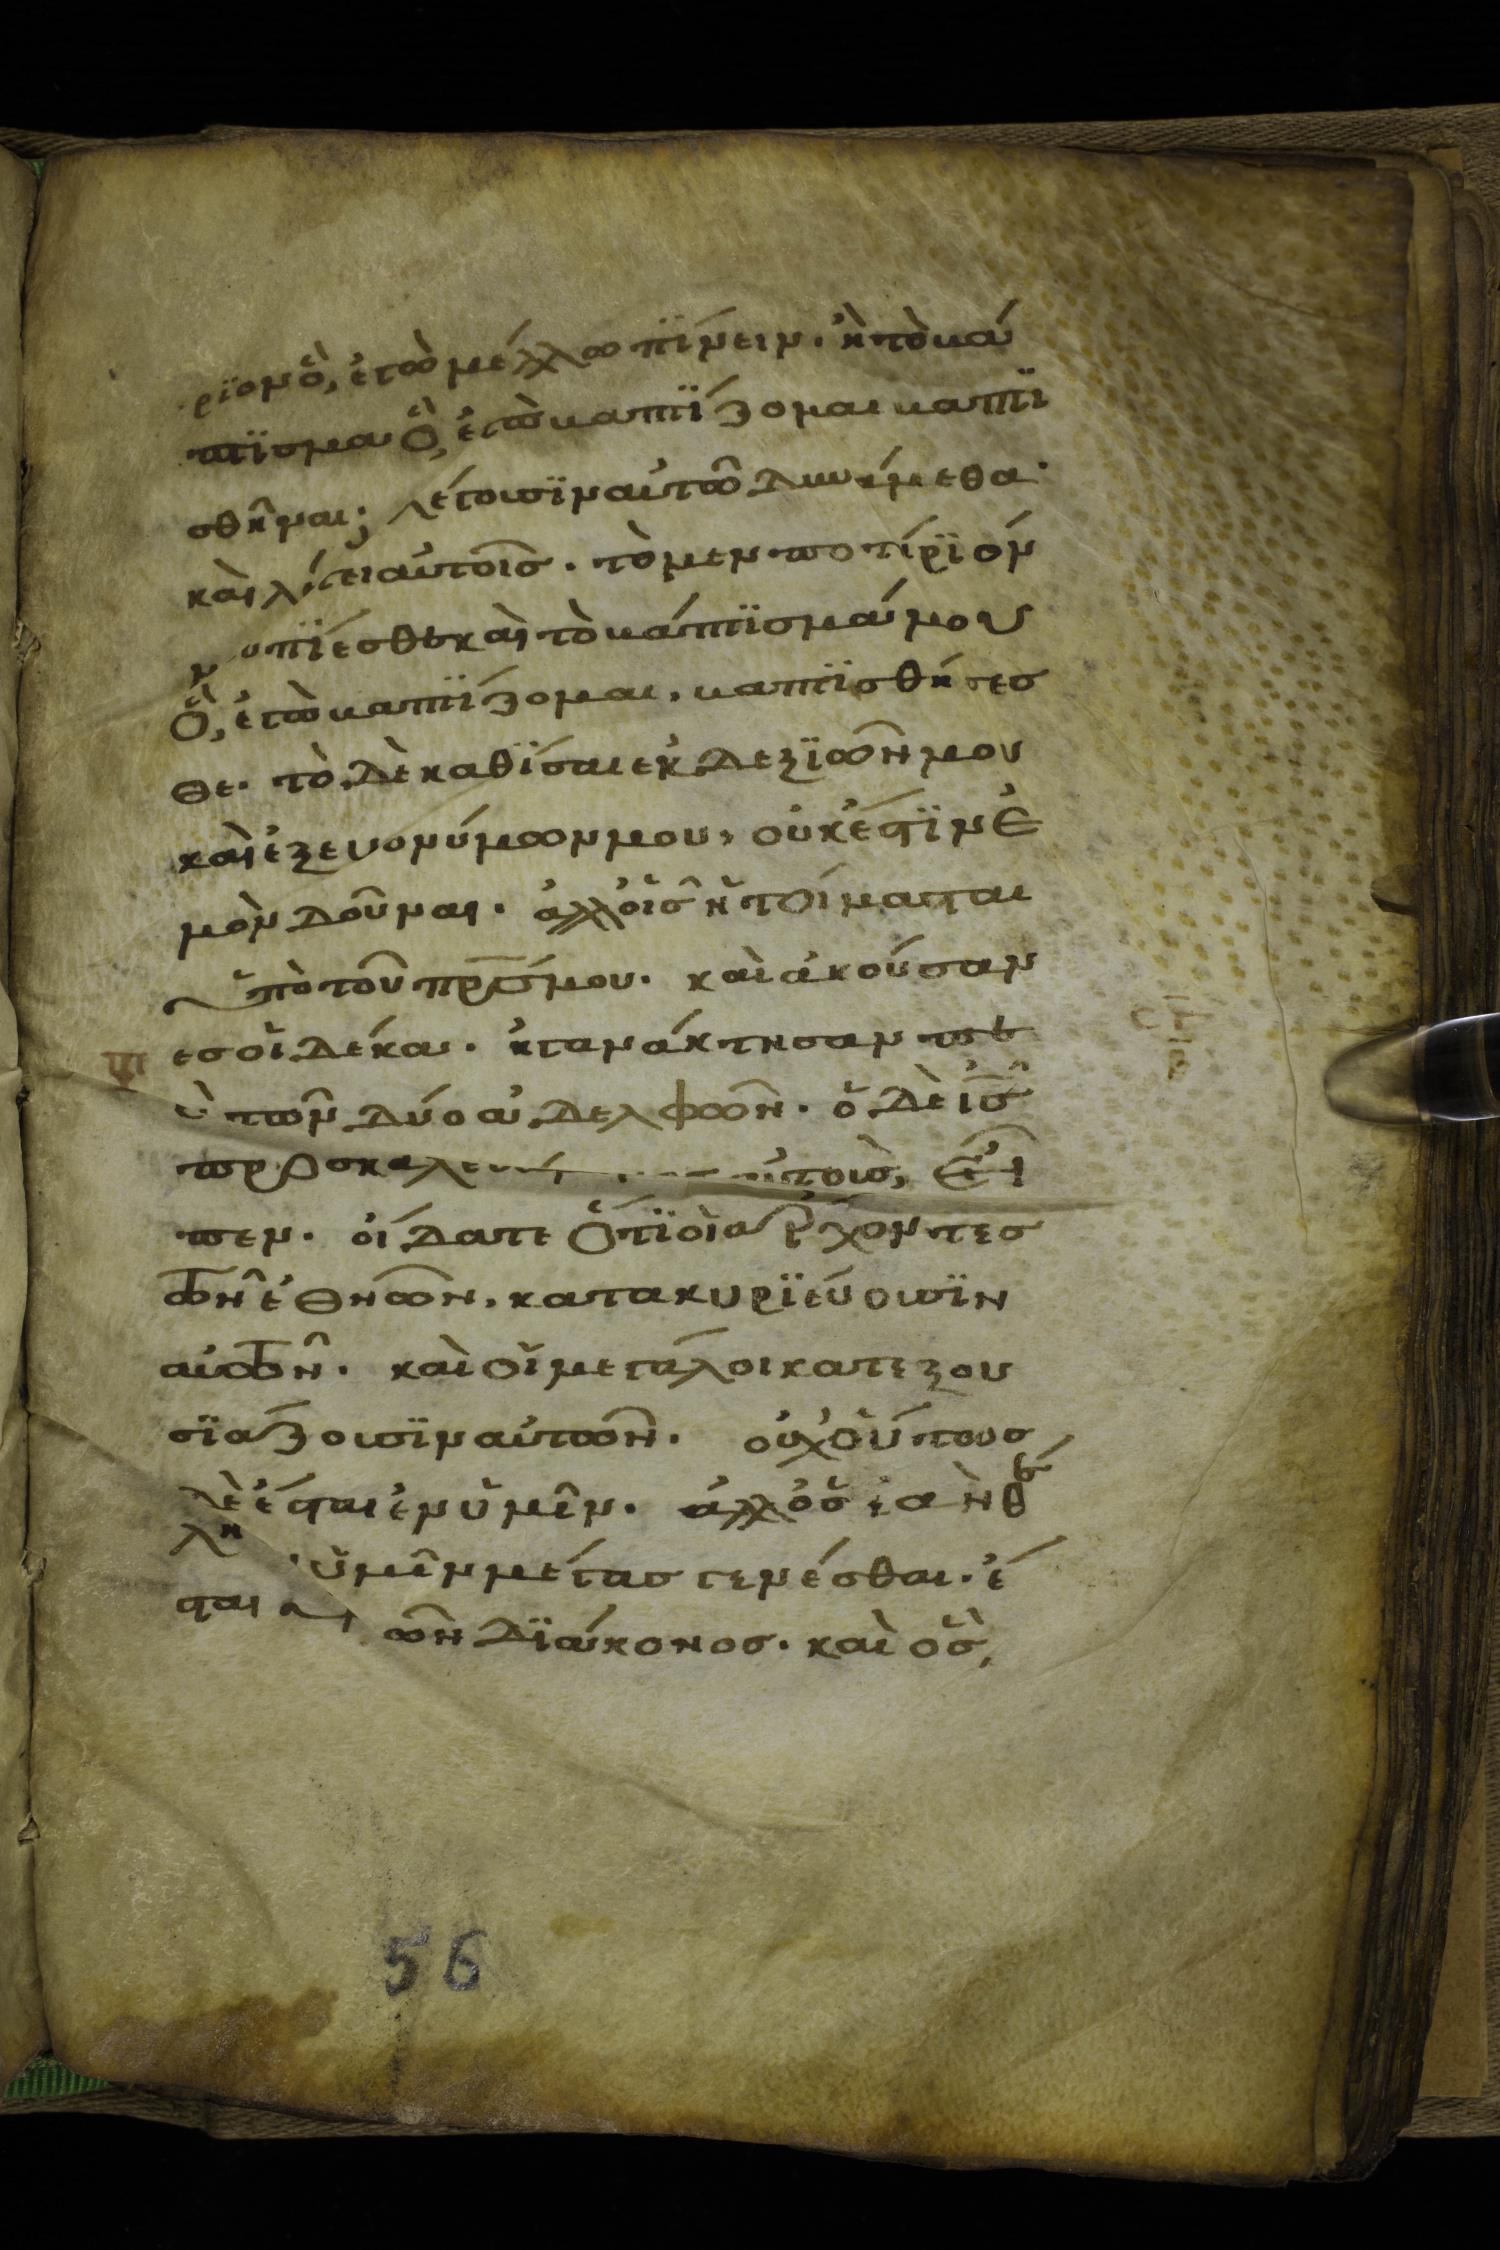 ρϊον ὃ, ἐγὼ μέλλω πΐνειν. ἢ τὸ βά
πτϊσμα ὃ, ἐγὼ βαπτΐζομαι βαπτϊ
σθῆναι; λέγουσϊν αὐτῶ δυνάμεθα·
καὶ λέγει αὐτοῖς. τὸ μεν ποτίρϊόν
μου πΐεσθε καὶ τὸ βάπτϊσμά μου
ὃ, ἐγὼ βαπτΐζομαι, βαπτϊσθήσεσ
θε. τὸ δὲ καθΐσαι εκ δεξϊῶν μου
καὶ ἐξ ευονύμων μου, οὐκ ἔστϊν ἐ
μὸν δοῦναι. ἀλλοἷς ἡτοίμασται
ὑπὸ τοῦ πρ̅ς μου. καὶ ἀκούσαν
τες οἱ δέκα. ἠγανάκτησαν πε
ρὶ τῶν δύο ἀδελφῶν. ὁ δὲ ι̅ς
προσκαλε αὐτοὺς, εἶ
πεν. οἴδατε ὅτϊ οἱ ἄρχοντες
τῶν ἐθνῶν, κατακυρϊεύουσϊν
αὐτῶν. καὶ οἱ μεγάλοι κατεξου
σϊάζουσϊν αὐτῶν. οὐχ οὕτως
δὲ ἔσται ἐν ὑμῖν. ἀλλὸς ἐὰν θέ
λη ὑμῖν μέγας γενέσθαι. ἔ
σται ῶν δϊάκονος. καὶ ὃς,
56